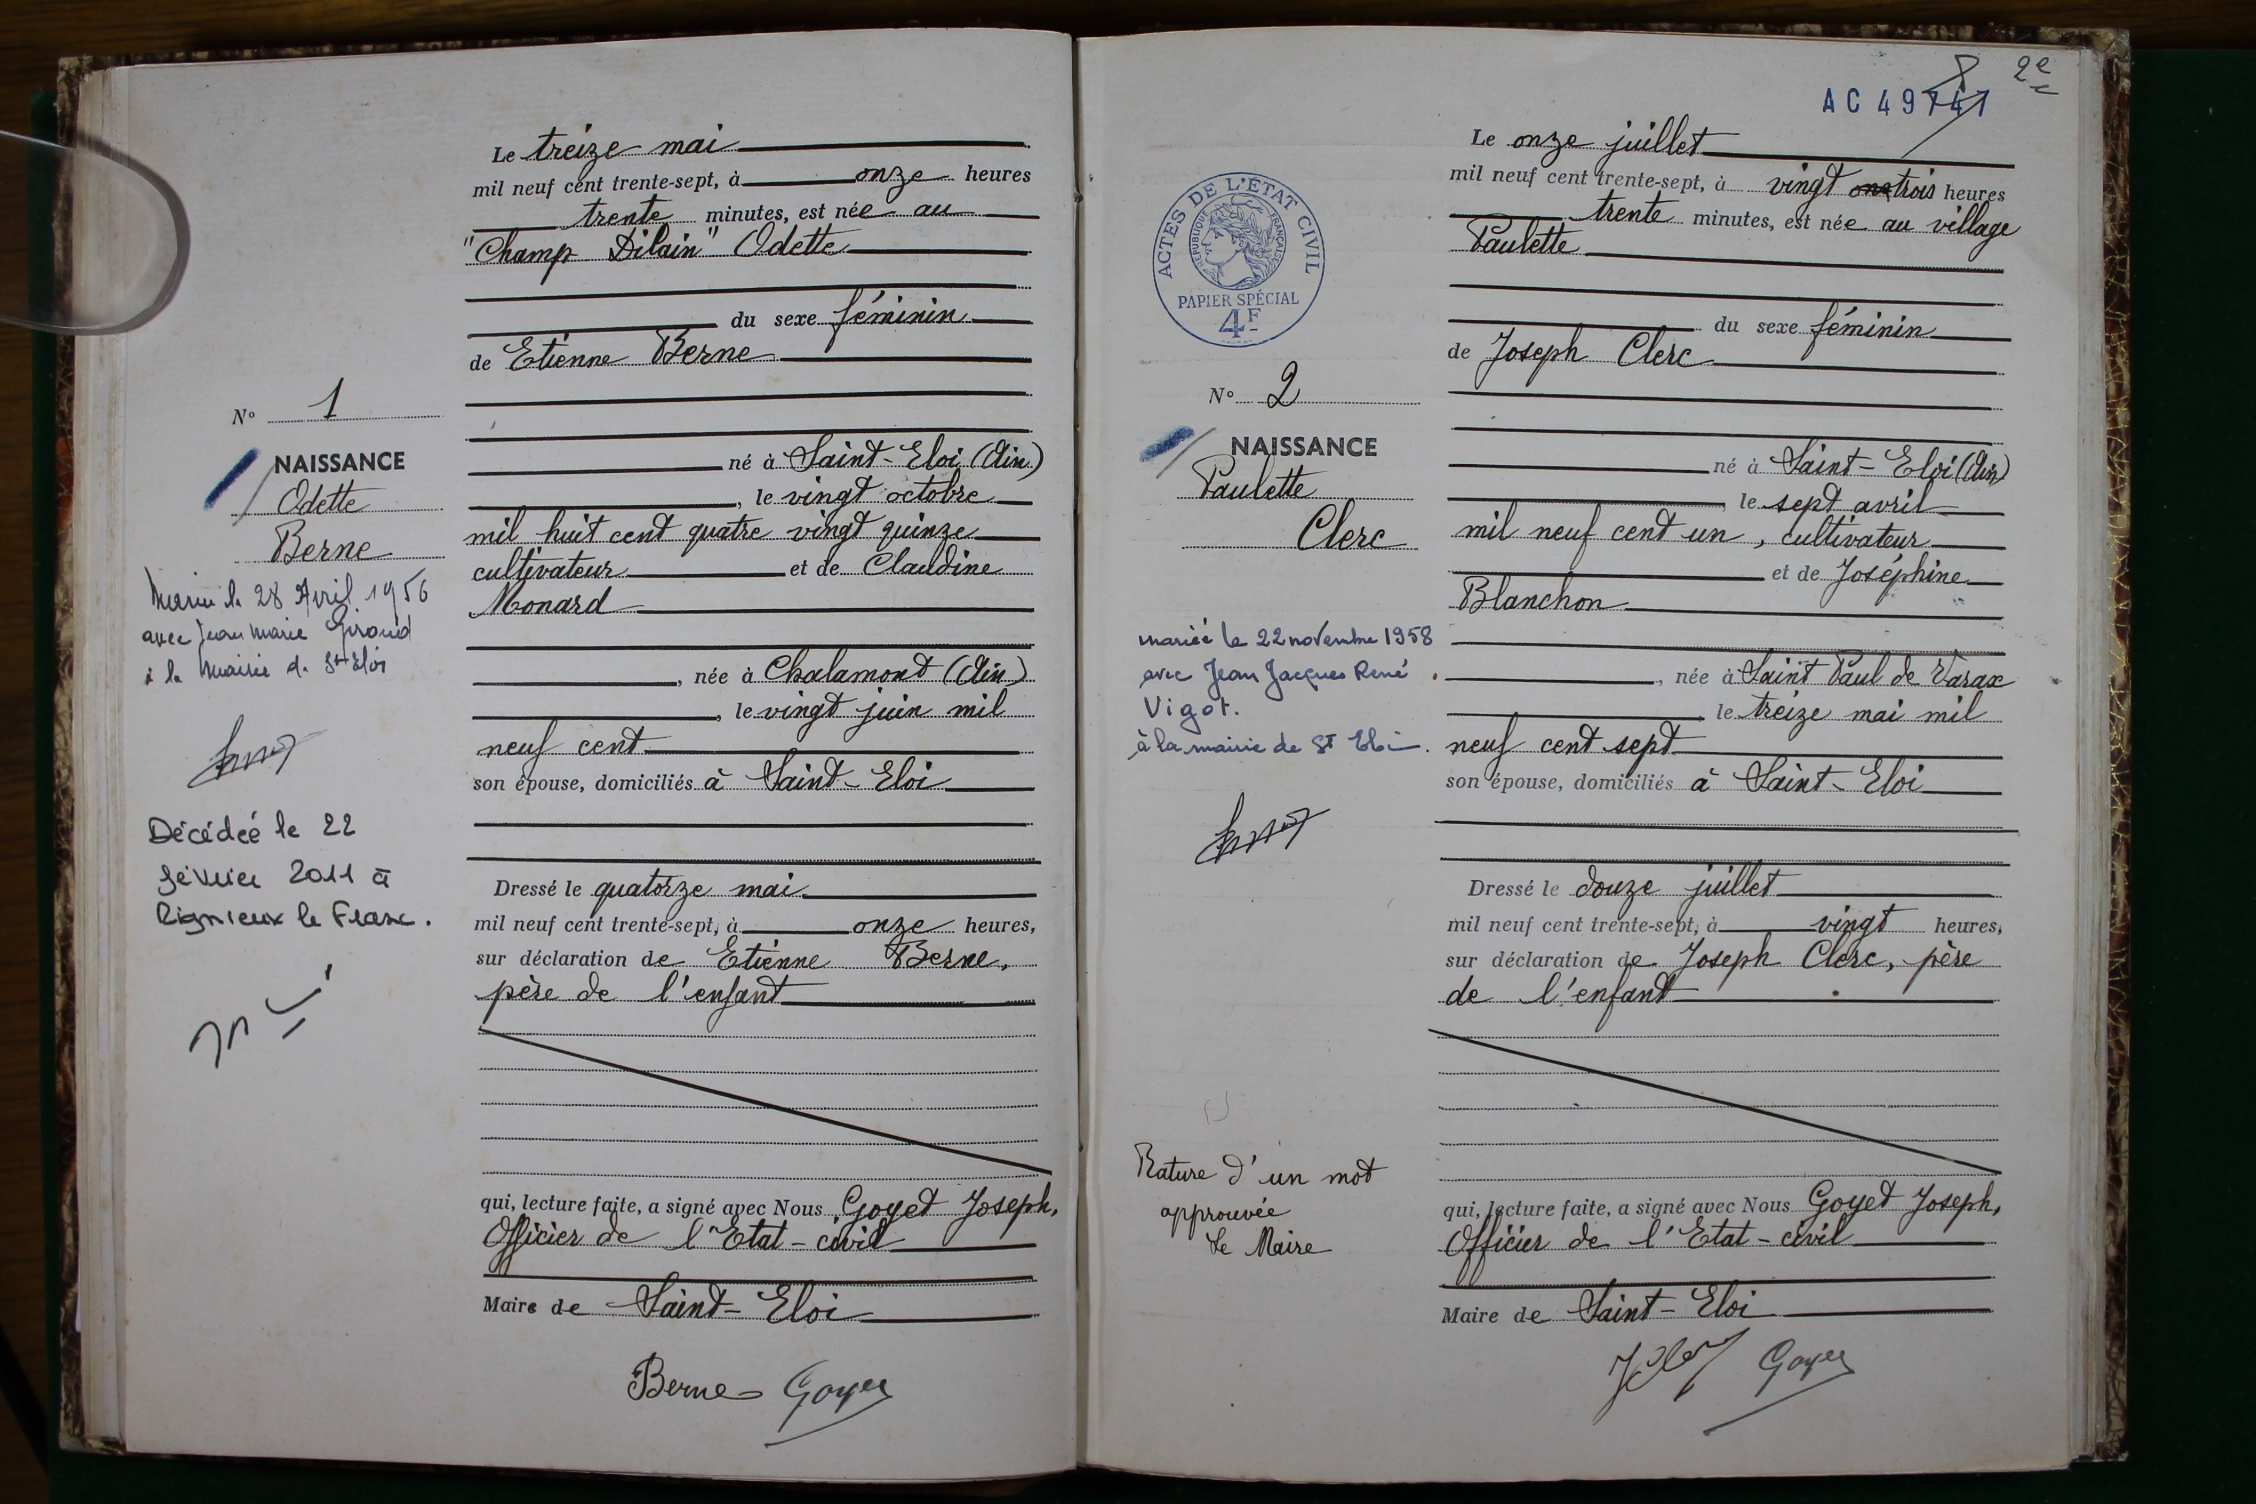 Le treize mai
mil neuf cent trente-sept, à onze heures
trente minutes, est née au
"Champ Dilain" Odette
du sexe féminin
de Etienne Berne
né à Saint-Eloi (Ain)
, le vingt octobre
mil huit cent quatre vingt quinze
cultivateur et de Claudine
Monard
, née à Chalamont (Ain)
, le vingt juin mil
neuf cent
son épouse, domiciliés à Saint-Eloi
Dressé le quatorze mai
mil neuf cent trente-sept, à onze heures,
sur déclaration de Etienne Berne,
père de l'enfant
qui, lecture faite, a signé avec Nous Goyet Joseph,
Officier de l'Etat-civil
Maire de Saint-Eloi
Berne Goyet
N° 1
NAISSANCE
Odette
Berne
Mariée le 28 Avril 1956
avec Jean Marie Giroud
à la Mairie de St Eloi
Décédée le 22
février 2011 à
Rignieux le Franc.
AC 49747
8
2e
Le onze juillet
mil neuf cent trente-sept, à vingt trois heures
trente minutes, est née au village
Paulette
du sexe féminin
de Joseph Clerc
né à Saint-Eloi (Ain)
, le sept avril
mil neuf cent un, cultivateur
et de Joséphine
Blanchon
, née à Saint Paul de Varax
le treize mai mil
neuf cent sept
son épouse, domiciliés à Saint-Eloi
Dressé le douze juillet
mil neuf cent trente-sept, à vingt heures,
sur déclaration de Joseph Clerc, père
de l'enfant
qui, lecture faite, a signé avec Nous Goyet Joseph,
Officier de l'Etat-civil
Maire de Saint-Eloi
Goyet
ACTES DE L'ÉTAT CIVIL
RÉPUBLIQUE FRANÇAISE
PAPIER SPÉCIAL
4F
N° 2
NAISSANCE
Paulette
Clerc
mariée le 22 novembre 1958
avec Jean Jacques René
Vigot.
à la mairie de St Eloi.
Rature d'un mot
approuvée
Le Maire